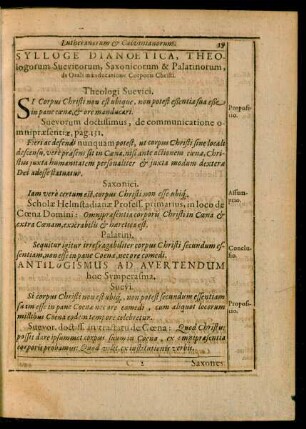 Lutheranorum & Calvinianorum. 19
SYLLOGE DIANOETICA, THEO-
logorum Suevicorum, Saxonicorum & Palatinorum,
de Orali manducatione Corporis Christi.
Theologi Suevici.
SI Corpus Christi non est ubique, non potest essentia sua esse
in pane cœnæ, & ore manducari.
Propositio.
Suevorum doctissimus, de communicatione o-
mnipræsentiæ, pag. 151.
Fieri ac defendi nunquam potest, ut corpus Christi sine locali
descensu, verè præsens sit in Cœna, nisi ante actionem cœnæ, Chri-
stus juxta humanitatem personaliter & juxta modum dextera
Dei adesse statuatur.
Saxonici.
Iam verò certum est, corpus Christi non esse ubiq́;
Assumptio.
Scholæ Helmstadianæ Profess. primarius, in loco de
Cœna Domini: Omnipræsentia corporis Christi in Cœna &
extra Cœnam, execrabilis & hæretica est.
Palatini.
Sequitur igitur irrefragabiliter corpus Christi secundum es-
sentiam, non esse in pane Cœnæ, nec ore comedi.
Conclusio.
ANTILOGISMUS AD AVERTENDUM
hoc Symperasma.
Suevi.
Si corpus Christi non est ubiq́;, non potest secundum essentiam
suam esse in pane Cœnæ nec ore comedi, cum aliquot locorum
millibus Cœna eodem tempore celebretur.
Propositio.
Suevor. doctiss. in tractatu de Cœna: Quod Christus
possit dare ipsummet corpus suum in Cœna, ex omnipræsentia
corporis probamus: Quod velit, ex institutionis verbis.
C 2 Saxones